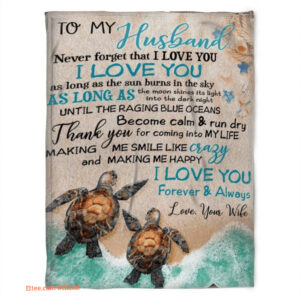 TO MY Husband
Never forget that I LOVE YOU
I LOVE YOU
as long as the sun burns in the sky
AS LONG AS the moon shines its light
into the dark night
UNTIL THE RAGING BLUE OCEANS
Become calm & run dry
Thank you for coming into MY LIFE
MAKING ME SMILE LIKE crazy
and MAKING ME HAPPY
I LOVE YOU
Forever & Always
Love, Your Wife